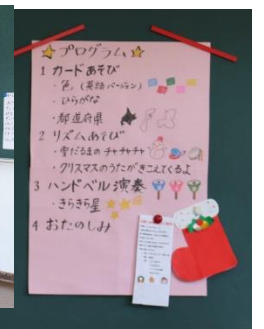 プログラム
1 カードあそび
・色（英語バージョン）
・ひらがな
・都道府県
2 リズムあそび
・雪だるまのチャチャチャ
・クリスマスのうたがきこえてくるよ
3 ハンドベル演奏
・きらきら星
4 おたのしみ